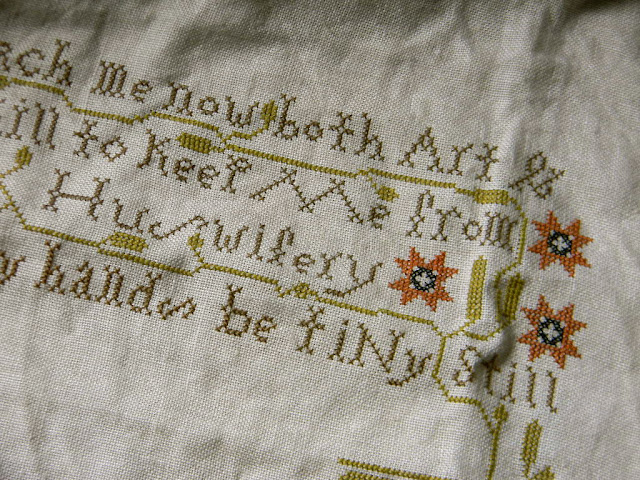 ach me now both Art &
ill to Keep Me from
Huswifery
hands be tiNy Still